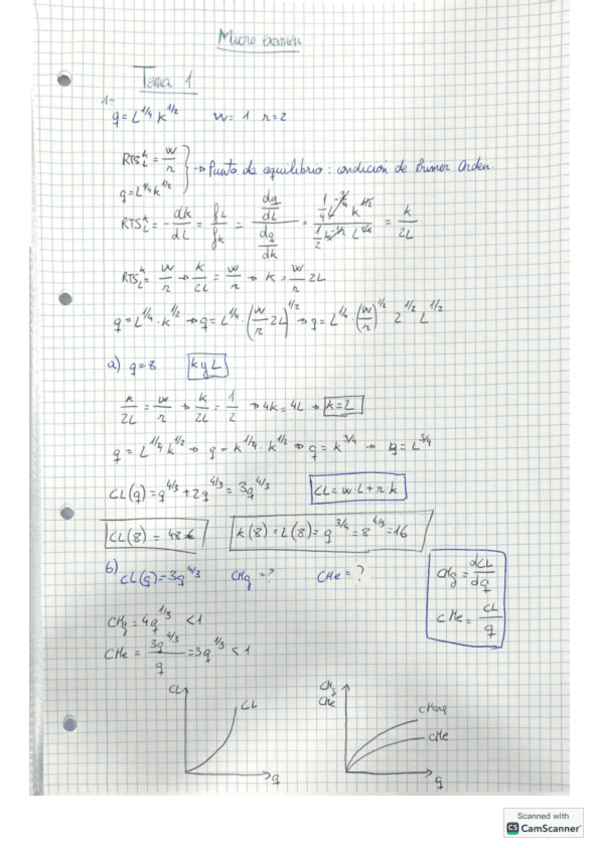 Micro examen
Tema 1
1=
q = L^1/4 k^1/2    w = 1  r = 2
RTS^k_L = w/r
q = L^1/4 k^1/2
→ Punto de equilibrio: condición de Primer Orden.
RTS^k_L = - dk/dL = fL/fk = (dq/dL)/(dq/dk) = (1/4 L^-3/4 k^1/2)/(1/2 k^-1/2 L^1/4) = k/2L
RTS^k_L = w/r → k/2L = w/r → k = w/r 2L
q = L^1/4 · k^1/2 → q = L^1/4 · (w/r 2L)^1/2 → q = L^1/4 · (w/r)^1/2 2^1/2 L^1/2
a) q = 8    k y L
k/2L = w/r → k/2L = 1/2 → 4k = 4L → k = L
q = L^1/4 k^1/2 → q = k^1/4 · k^1/2 → q = k^3/4 → q = L^3/4
CL(q) = q^4/3 + 2q^4/3 = 3q^4/3    CL = w·L + r·k
CL(8) = 48€    k(8) = L(8) = q^3/4 = 8^4/3 = 16
b) CL(q) = 3q^4/3    CMg = ?    CMe = ?
CMg = dCL/dq
CMe = CL/q
CMg = 4q^1/3 < 1
CMe = 3q^4/3 / q = 3q^1/3 < 1
CL
CL
q
CMg
CMe
CMarg
CMe
q
Scanned with
CS CamScanner